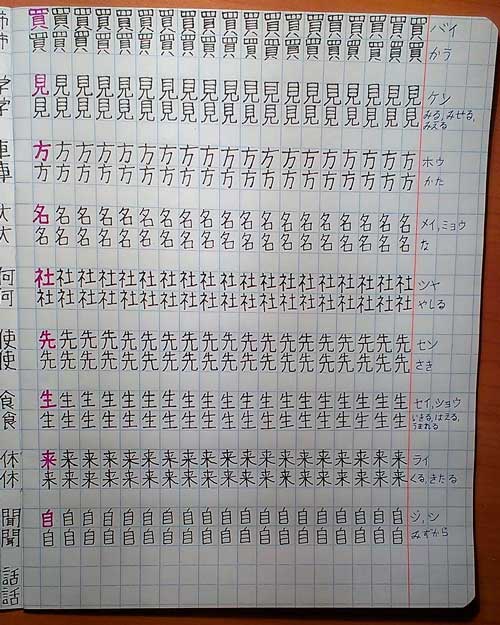 姉 買買買買買買買買買買買買買買買買買買買 バイ
姉 買買買買買買買買買買買買買買買買買買買 かう
学 見見見見見見見見見見見見見見見見見見見 ケン
学 見見見見見見見見見見見見見見見見見見見 みる,みせる,
みえる
車 方方方方方方方方方方方方方方方方方方方 ホウ
車 方方方方方方方方方方方方方方方方方方方 かた
大 名名名名名名名名名名名名名名名名名名名 メイ,ミョウ
大 名名名名名名名名名名名名名名名名名名名 な
何 社社社社社社社社社社社社社社社社社社社 シャ
何 社社社社社社社社社社社社社社社社社社社 やしる
使 先先先先先先先先先先先先先先先先先先先 セン
使 先先先先先先先先先先先先先先先先先先先 さき
食 生生生生生生生生生生生生生生生生生生生 セイ,ショウ
食 生生生生生生生生生生生生生生生生生生生 いきる,はえる,
うまれる
休 来来来来来来来来来来来来来来来来来来来 ライ
休 来来来来来来来来来来来来来来来来来来来 くる,きたる
聞 自自自自自自自自自自自自自自自自自自自 ジ,シ
聞 自自自自自自自自自自自自自自自自自自自 みずから
話
話